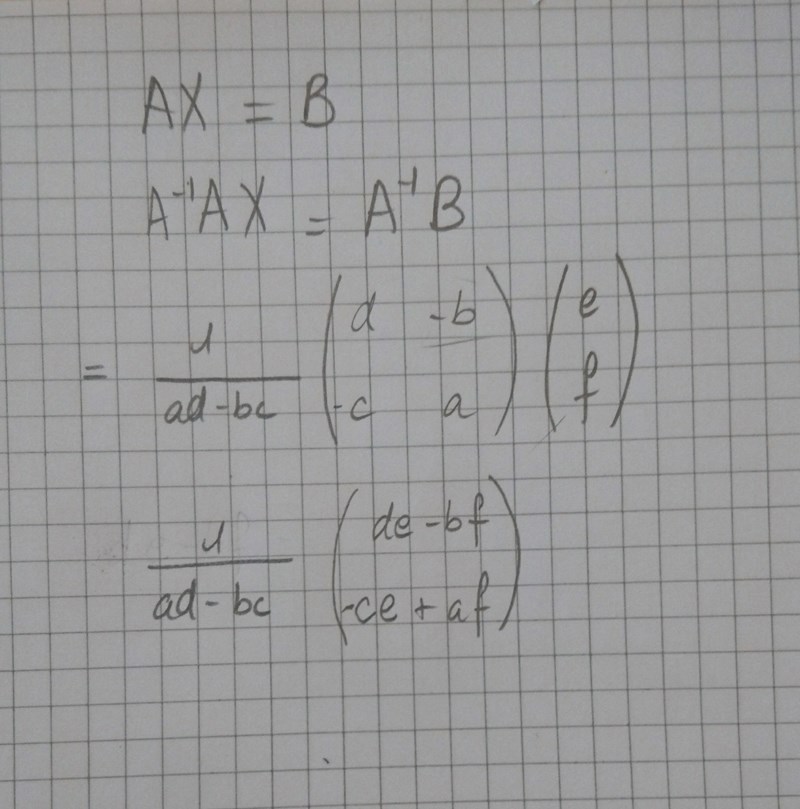 AX = B
A⁻¹AX = A⁻¹B
= 1/(ad-bc) (d -b; -c a) (e; f)
1/(ad-bc) (de-bf; -ce+af)